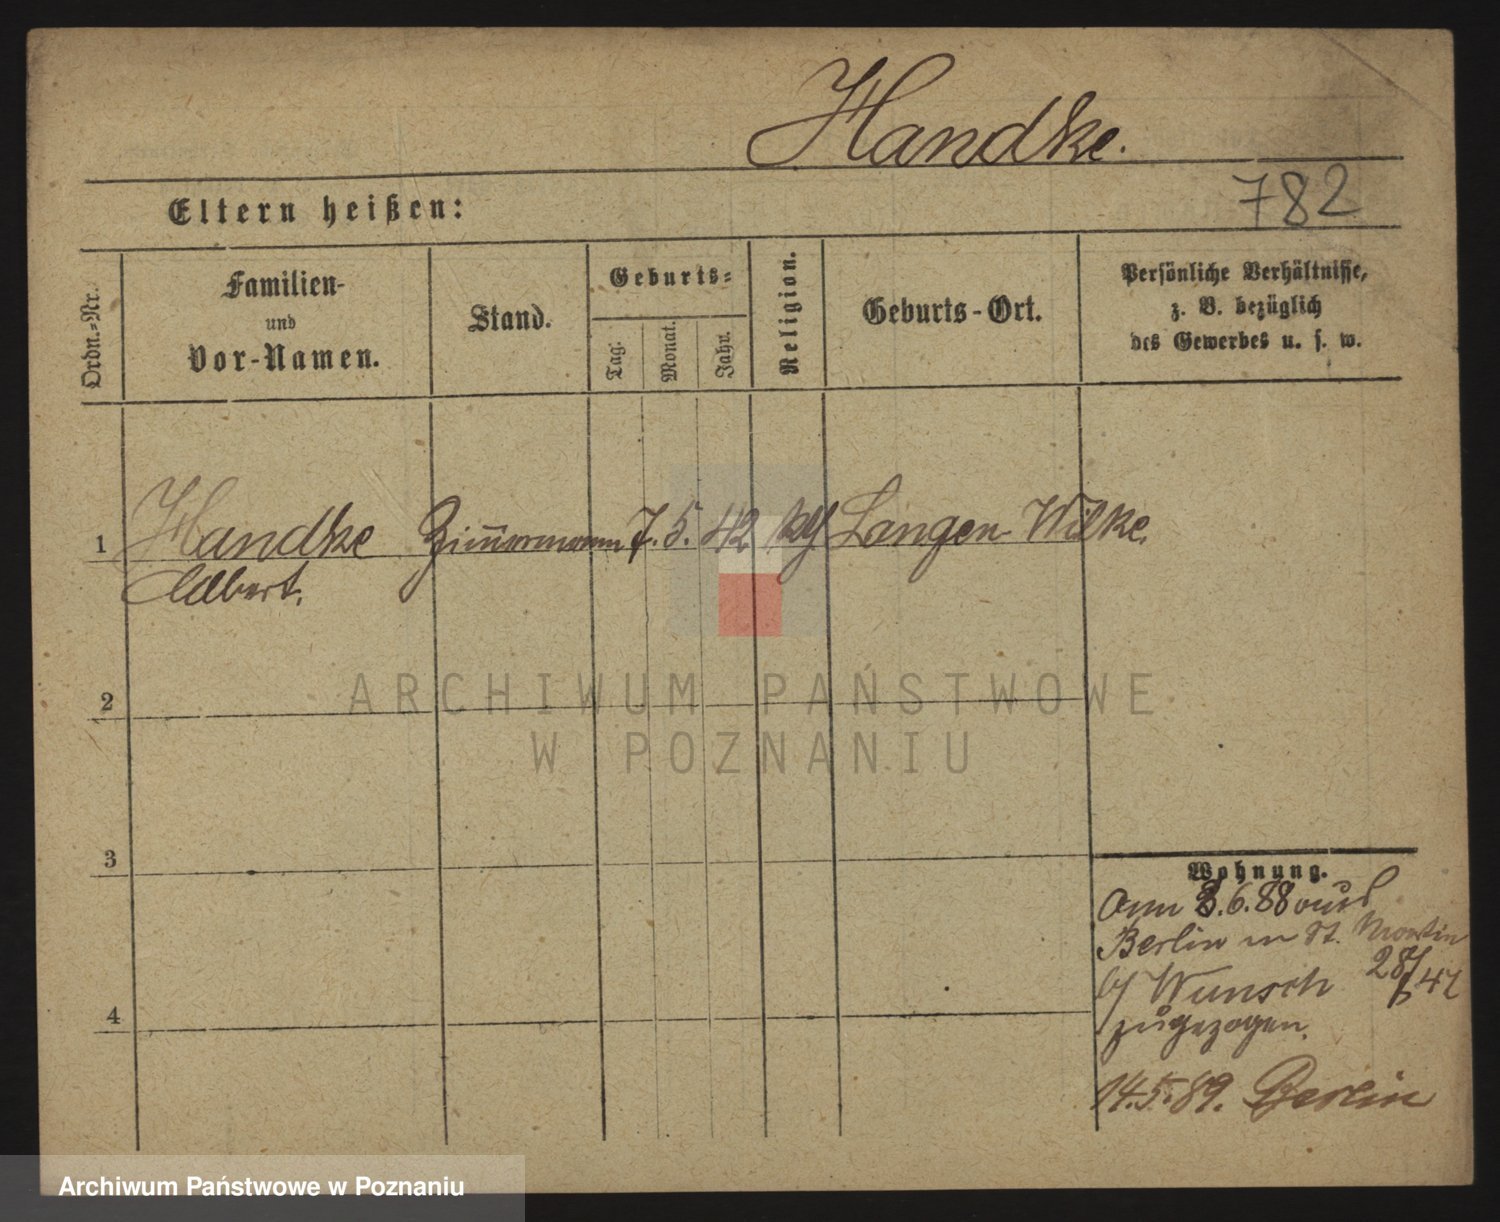 Handke.
782
Eltern heißen:
Ordn.-Nr.
Familien-
und
Vor-Namen.
Stand.
Geburts-
Tag.
Monat.
Jahr.
Religion.
Geburts-Ort.
Persönliche Verhältnisse,
z. B. bezüglich
des Gewerbes u. s. w.
1 Handke Zimmermann 7. 5. 42 Langen-Wilke.
Albert.
2
ARCHIWUM PAŃSTWOWE
W POZNANIU
3
Wohnung.
am 3.6.88 aus
Berlin in St. Martin
b/ Wunsch
zugezogen.
4
14.5.89. Berlin
Archiwum Państwowe w Poznaniu